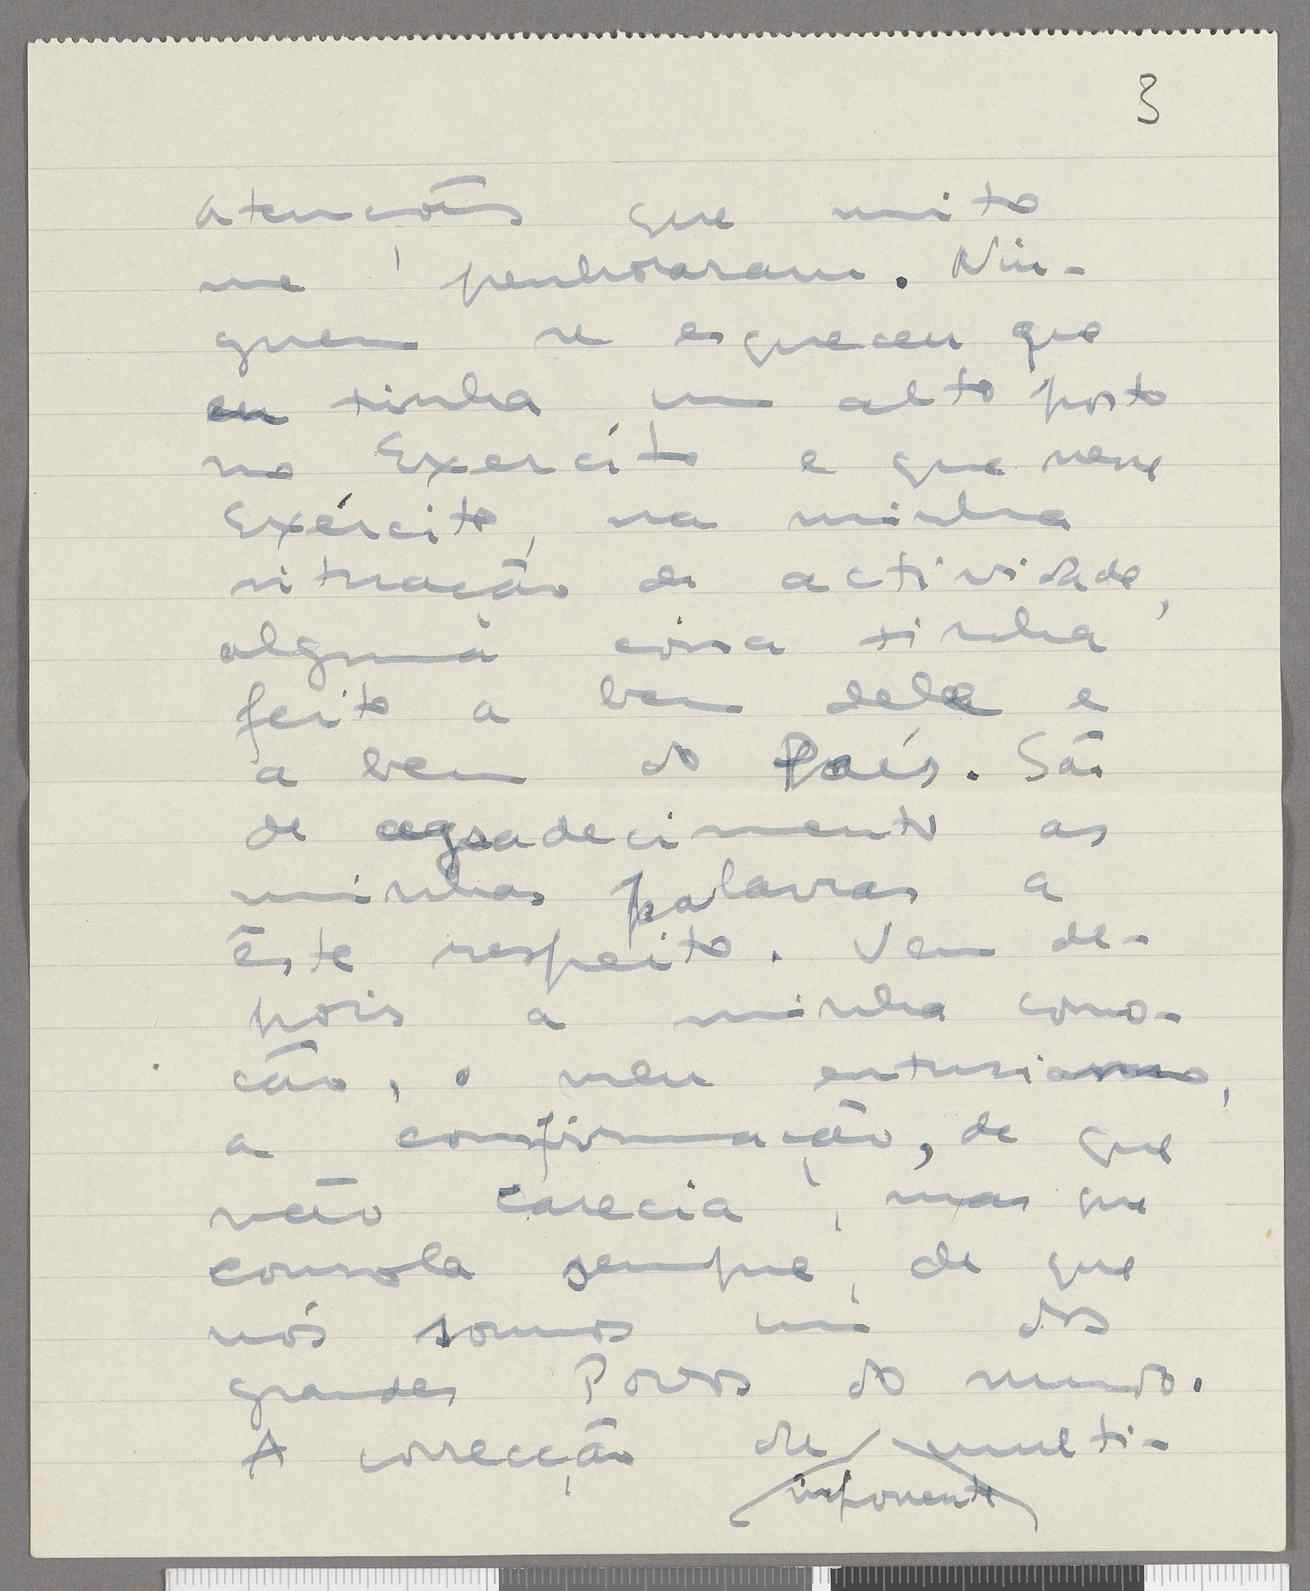 3
atenções que muito
me penhoraram. Nin-
guem se esqueceu que
eu tinha um alto posto
no Exercíto e que nesse
Exército, na minha
situação de actividade,
alguma coisa tinha
feito a bem dele e
a bem do País. São
de agradecimento as
minhas palavras a
êste respeito. Vem de-
pois a minha como-
ção, o meu entusiasmo,
a confirmação, de que
não carecia, mas que
consola sempre, de que
nós somos um dos
grandes Povos do mundo.
A correcção da multi-
imponente